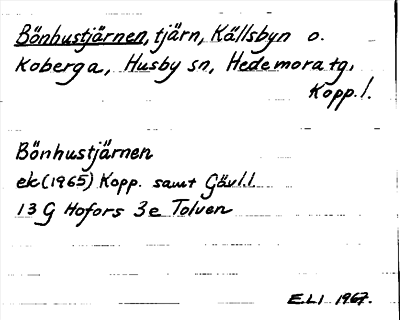 Bönhustjärnen, tjärn, Källsbyn o.
Koberga, Husby sn, Hedemora tg,
Kopp. l.
Bönhustjärnen
ek (1965) Kopp. samt Gävl. l.
13 G Hofors 3e Tolven
E.L.I 1967.